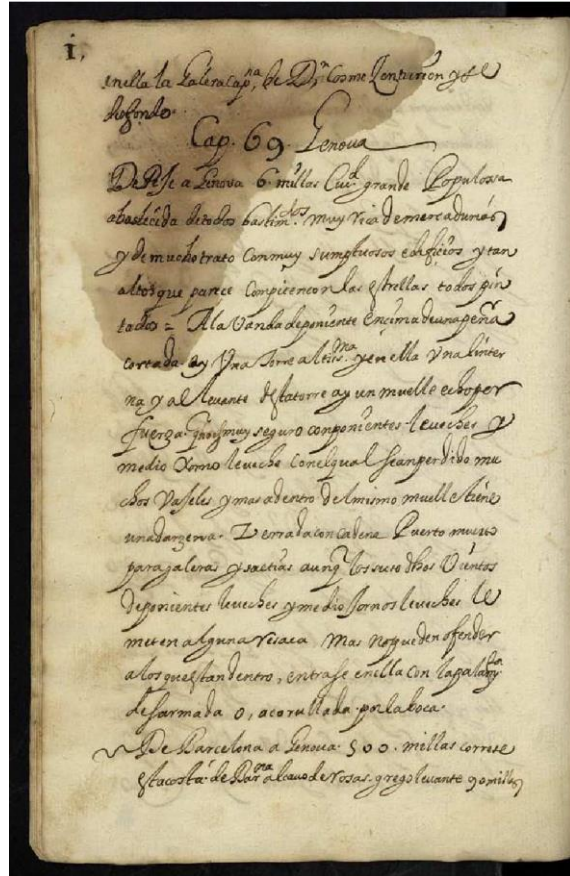 1,
enella la Galera Cap.na, de D.n Cosme Zenturion y se
desfondo.
Cap. 69. Genoua
De Pese a Genoua 6. millas Ciu.d grande Populossa
abastecida de todos bastim.tos muy rica de mercadurias
y de mucho trato Con muy sumptuosos edificios y tan
altos que parece Compiten con las estrellas todos pin
tados = A la Vanda de poniente encima de una peña
cortada ay Vna Torre altiss.ma y en ella Vna linter
na y al levante desta torre ay un muelle echo por
fuerza muy seguro con ponientes leueches y
medio Jorno leueche Con el qual se an perdido mu
chos Vaseles y mas adentro del mismo muelle tiene
una darzena. Zerrada con cadena Puerto muerto
para galeras y sactias aunq los suso dhos Vientos
de ponientes leueches y medio Jornos leueches le
meten alguna resaca Mas no pueden ofender
a los que estan dentro, entrase en ella con la palam.ta
desarmada o, acorullada por la boca.
De Barcelona a Genoua. 500. millas correse
esta costa de Bar.na al cauo de rosas. grego leuante 90 millas